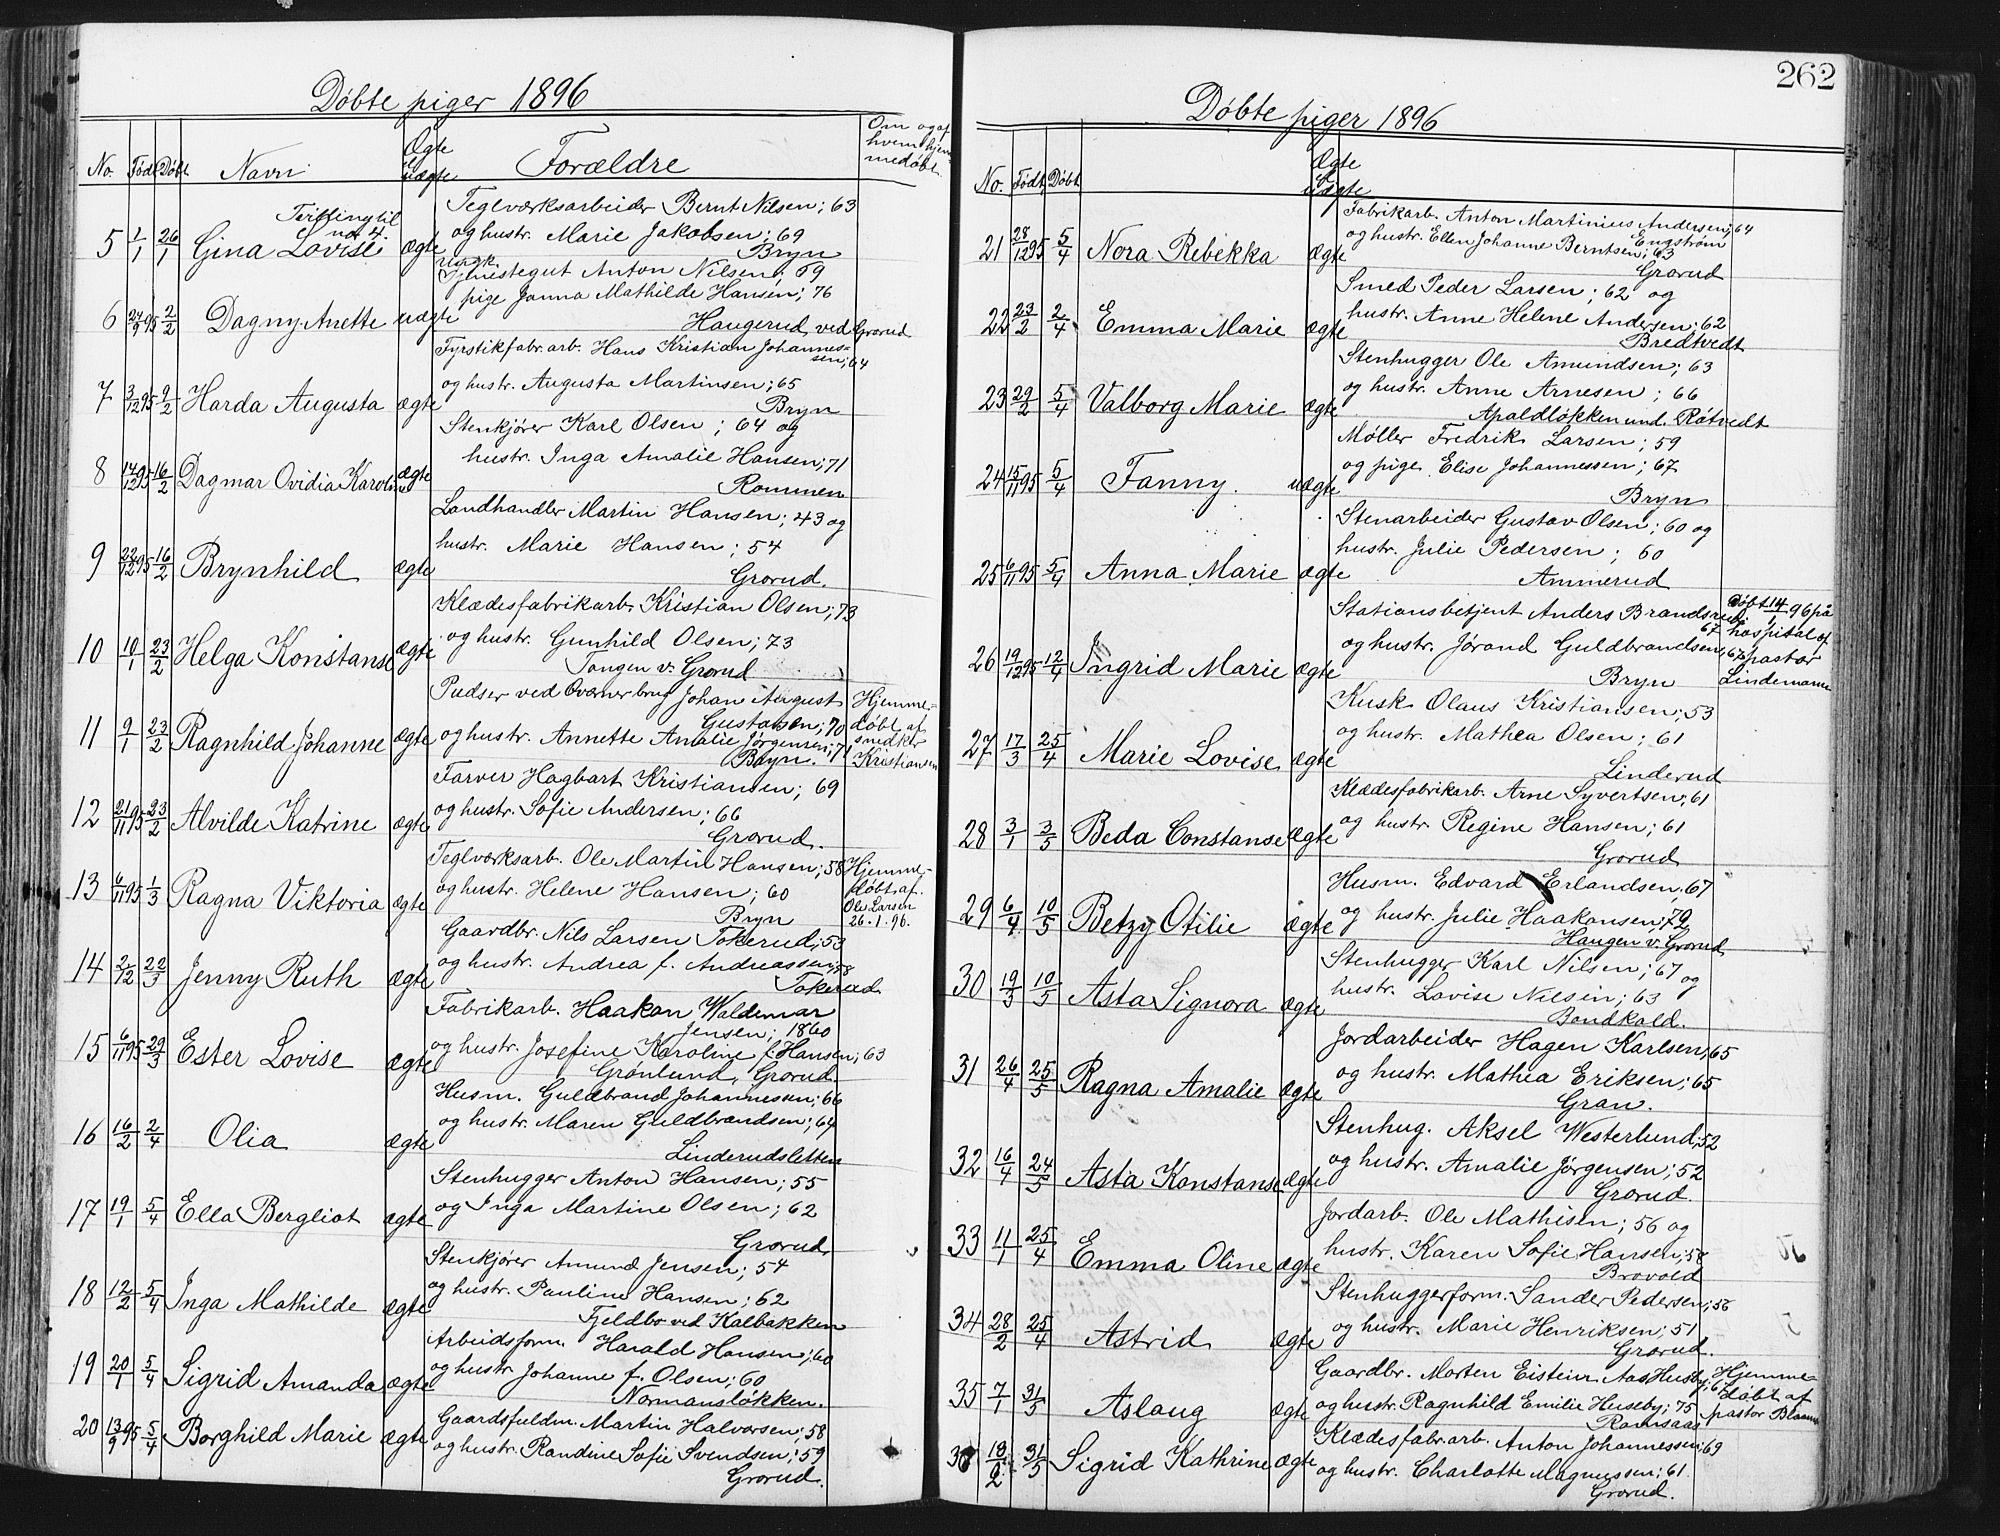 Døbte piger 1896
No. Født Døbt Navn Ægte el. uægte Forældre Om og af hvem hjemmedøbt.
Tvilling til no 4.
Teglværksarbeider Bernt Nilsen; 63
5 1/1 26/1 Gina Lovise ægte og hustr. Marie Jakobsen; 69
Bryn
ugift.
Tjenestegut Anton Nilsen; 69
pige Janna Mathilde Hansen; 76
6 24/9 95 2/2 Dagny Anette uægte Haugerud ved Grorud
Fyrstikfabr. arb. Hans Kristian Johannes-
sen; 64
7 3/12 95 9/2 Harda Augusta ægte og hustr. Augusta Martinsen; 65
Bryn
Stenkjører Karl Olsen; 64 og
8 14/12 95 16/2 Dagmar Ovidia Karoline ægte hustr. Inga Amalie Hansen; 71
Rommen
Landhandler Martin Hansen; 43 og
9 22/12 95 16/2 Brynhild ægte hustr. Marie Hansen; 54
Grorud.
Klædesfabrikarb. Kristian Olsen; 73
10 10/1 23/2 Helga Konstanse ægte og hustr. Gunhild Olsen; 73
Tangen v. Grorud
Pudser ved Oværnerbrug Johan August
Gustavsen; 70
11 9/1 23/2 Ragnhild Johanne ægte og hustr. Annette Amalie Jørgensen; 71
Bryn.
Hjemme-
døbt af
snedker
Kristiansen
Farver Hagbart Kristiansen; 69
12 21/11 95 23/2 Alvilde Katrine ægte og hustr. Sofie Andersen; 66
Grorud.
Teglværksarb. Ole Martin Hansen; 58
13 6/11 95 1/3 Ragna Viktoria ægte og hustr. Helene Hansen; 60
Bryn
Hjemme-
døbt af
Ole Larsen
26.1.96.
Gaardbr. Nils Larsen Tokerud; 53
14 2/12 22/3 Jenny Ruth ægte og hustr. Andrea f. Andreassen; 58
Tokerud
Fabrikarb. Haakon Waldemar
Jensen; 1860
15 6/11 95 29/3 Ester Lovise ægte og hustr. Josefine Karoline f. Hansen; 63
Grønlund, Grorud.
Husm. Guldbrand Johannessen; 66
16 16/2 2/4 Olia ægte og hustr. Maren Guldbrandsen; 64
Linderudsletten
Stenhugger Anton Hansen; 55
17 19/1 5/4 Ella Bergliot ægte og Inga Martine Olsen; 62
Grorud
Stenkjører Amund Jensen; 54
18 12/2 5/4 Inga Mathilde ægte og hustr. Pauline Hansen; 62
Fjeldbo ved Kalbakken
Arbeidsform. Harald Hansen; 60
19 20/1 5/4 Sigrid Amanda ægte og hustr. Johanne f. Olsen; 60
Normansløkken.
Gaardsfuldm. Martin Halvorsen; 58
20 13/9 95 5/4 Borghild Marie ægte og hustr. Randine Sofie Svendsen; 59
Grorud.
262
Døbte piger 1896
No. Født Døbt Ægte el. uægte
Fabrikarb. Anton Martinius Andersen; 64
Engstrøm
21 28/12 95 5/4 Nora Rebekka ægte og hustr. Ellen Johanne Berntsen; 63
Grorud
Smed Peder Larsen; 62 og
22 23/2 2/4 Emma Marie ægte hustr. Anne Helene Andersen; 62
Bredtvedt
Stenhugger Ole Amundsen; 63
23 29/2 5/4 Valborg Marie ægte og hustr. Anne Arnesen; 66
Apaldløkken und. Røtvedt
Møller Fredrik Larsen; 59
24 15/11 95 5/4 Fanny. uægte og pige Elise Johannessen; 67
Bryn
Stenarbeider Gustav Olsen; 60 og
25 6/11 95 5/4 Anna Marie ægte hustr. Julie Pedersen; 60
Ammerud
Stationsbetjent Anders Brandsrud
67
26 19/12 95 12/4 Ingrid Marie ægte og hustr. Jørand Guldbrandsen; 67
Bryn
Døbt 14/1 96 på
hospital af
pastor
Lindemann
Kusk Olaus Kristiansen; 53
27 17/3 25/4 Marie Lovise ægte og hustr. Mathea Olsen; 61
Linderud
Klædesfabrikarb. Arne Syvertsen; 61
28 3/1 3/5 Beda Constanse ægte og hustr. Regine Hansen; 61
Grorud
Husm. Edvard Erlandsen; 67
29 6/4 10/5 Betzy Otilie ægte og hustr. Julie Haakonsen; 72
Haugen v. Grorud
Stenhugger Karl Nilsen; 67 og
30 19/3 10/5 Asta Signora ægte hustr. Lovise Nilsen; 63
Bondkald.
Jordarbeider Hagen Karlsen; 65
31 26/4 25/5 Ragna Amalie ægte og hustr. Mathea Eriksen; 65
Gran.
Stenhug. Aksel Westerlund; 52
32 16/4 24/5 Asta Konstanse ægte og hustr. Amalie Jørgensen; 52
Grorud.
Jordarb. Ole Mathisen; 56 og
33 11/1 25/4 Emma Oline ægte hustr. Karen Sofie Hansen; 58
Brovold
Stenhuggerform. Sander Pedersen; 56
34 28/2 25/4 Astrid ægte og hustr. Marie Henriksen; 51
Grorud.
Gaardbr. Morten Eistein Aas Husby; 67
35 7/1 31/5 Aslaug ægte og hustr. Ragnhild Emilie Huseby; 75
Ramsaas
Hjemme-
døbt af
pastor Blaauw
Klædesfabr. arb. Anton Johannessen; 69
36 18/2 31/5 Sigrid Kathrine ægte og hustr. Charlotte Magnussen; 61.
Grorud.